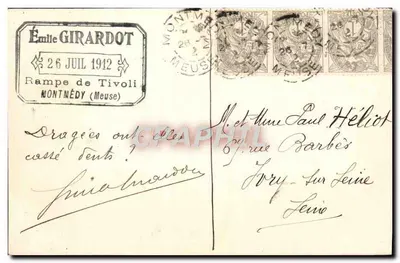 Émile GIRARDOT
26 JUIL 1912
Rampe de Tivoli
MONTMÉDY (Meuse)
MONTMÉDY
MEUSE
Dragées ont elles
cassé dents ?
M. et Mme Paul Héliot
rue Barbès
Ivry-sur-Seine
Seine